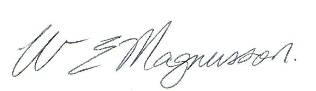 W E Magnusson.